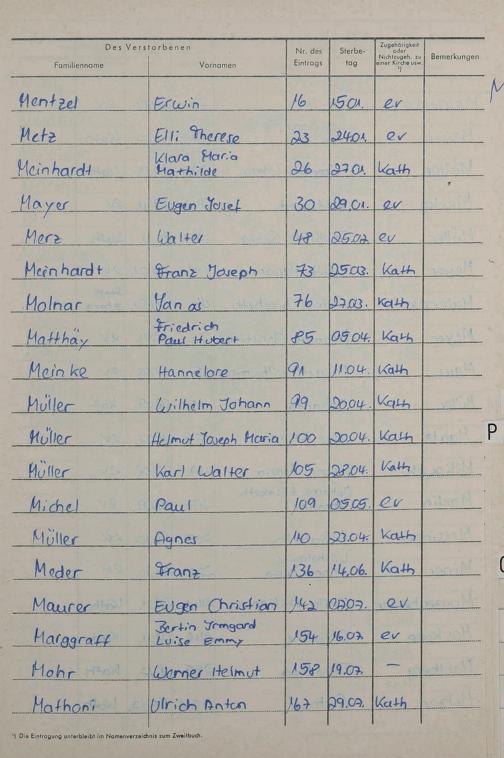 Des Verstorbenen
Familienname Vornamen Nr. des Eintrags Sterbetag Zugehörigkeit oder Nichtzugeh. zu einer Kirche usw. ¹) Bemerkungen
Mentzel Erwin 16 15.01. ev
Metz Elli Therese 23 24.01. ev
Meinhardt Klara Maria Mathilde 26 27.01. Kath
Mayer Eugen Josef 30 29.01. ev
Merz Walter 48 25.02. ev
Meinhardt Franz Joseph 73 25.03. Kath
Molnar Janos 76 27.03. Kath
Matthäy Friedrich Paul Hubert 85 05.04. Kath
Meinke Hannelore 91 11.04. Kath
Müller Wilhelm Johann 99 20.04. Kath
Müller Helmut Joseph Maria 100 20.04. Kath
Müller Karl Walter 105 28.04. Kath
Michel Paul 109 05.05. ev
Müller Agnes 110 23.04. Kath
Meder Franz 136 14.06. Kath
Maurer Eugen Christian 142 02.07. ev
Marggraff Bertin Irmgard Luise Emmy 154 16.07. ev
Mohr Werner Helmut 158 19.07. —
Mathoni Ulrich Anton 167 29.07. Kath
¹) Die Eintragung unterbleibt im Namenverzeichnis zum Zweitbuch.
P